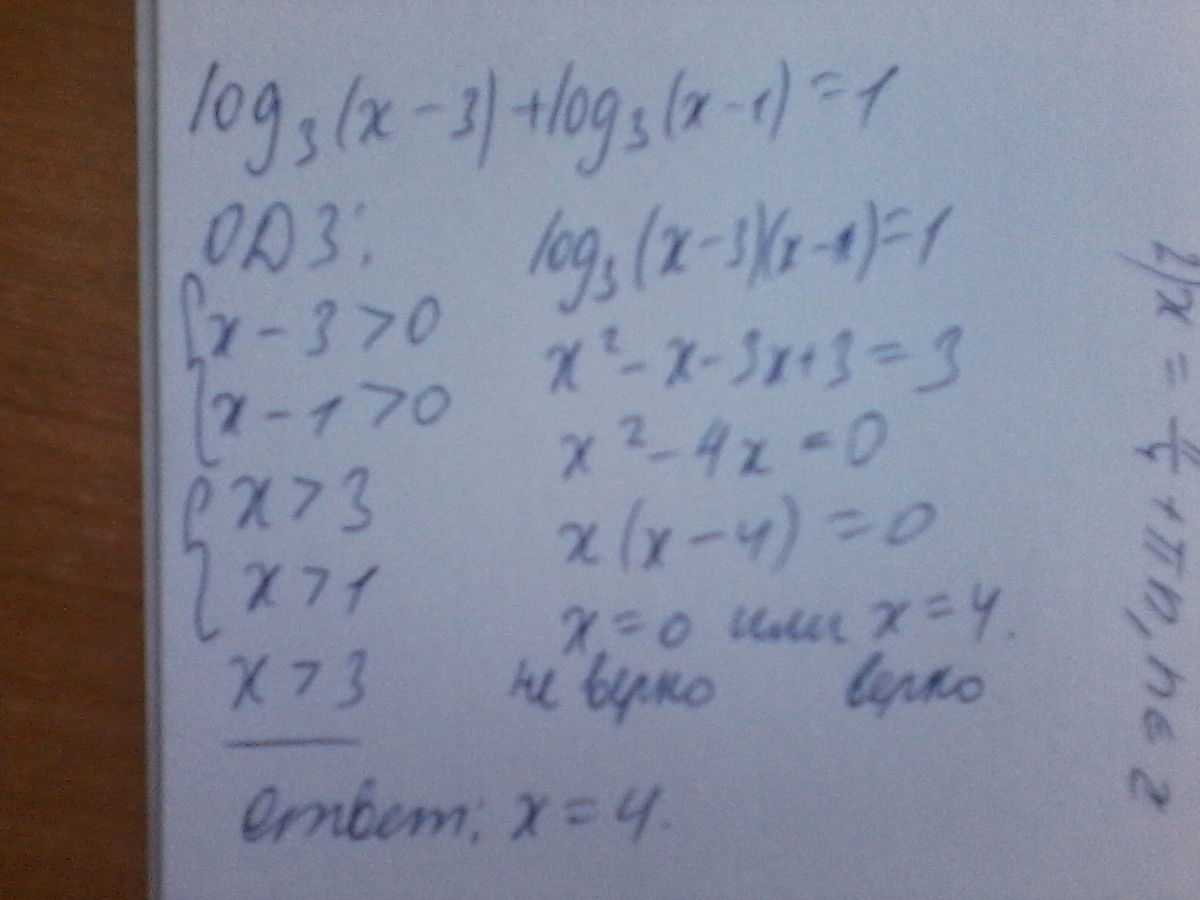 log₃(x-3)+log₃(x-1)=1
ОДЗ:
{x-3>0
x-1>0
{x>3
x>1
x>3
log₃(x-3)(x-1)=1
x²-x-3x+3=3
x²-4x=0
x(x-4)=0
x=0 или x=4.
не верно верно
Ответ: x=4.